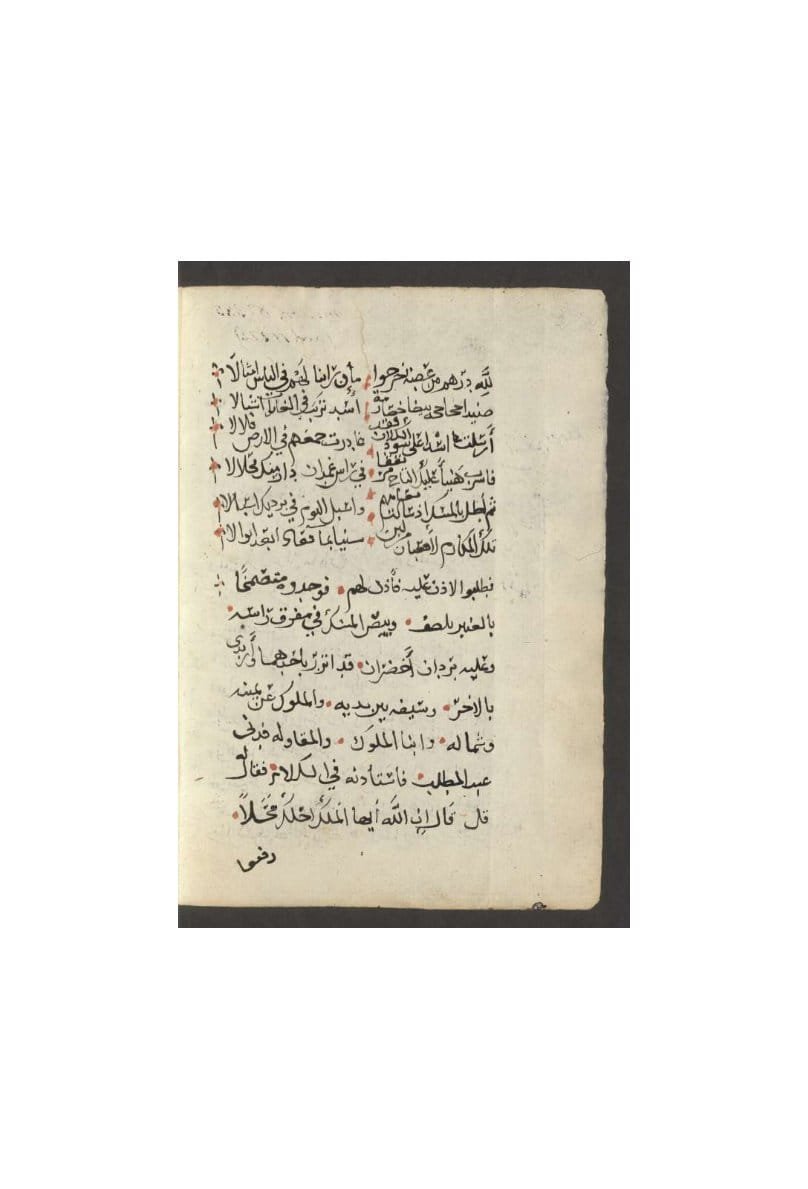 لله درهم من عصبة خرجوا ما إن راينا لهم في الناس امثالا
صيدا جحاجحة بيضا خضارمة أسد تربت في الغابات اشبالا
أرسلت اسدا على سود الكلاب فقد غادرت جمعهم في الارض فلالا
فاشرب هنيأ عليك التاج مرتفقا في راس غمدان دار منك محلالا
ثم اطل بالمسك اذ شالت نعامتهم واسبل اليوم في برديك اسبالا
تلك المكارم لا قعبان من لبن شيبا بما فعادا بعد ابوالا
فطلبوا الاذن عليه فأذن لهم فوجدوه متضمخا
بالعنبر يلصف وبيص المسك في مفرق راسه
وعليه بردان أخضران قد اتزر باحدهما وأرتدى
بالاخر وسيفه بين يديه والملوك عن يمينه
وشماله وابنا الملوك والمقاوله فدنى
عبد المطلب فاستأدنه في الكلام فقال له
قل قال إن الله أيها الملك احلك محلا
رفيعا